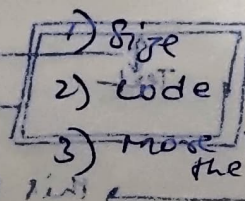 1) Size
2) code
3) More
the